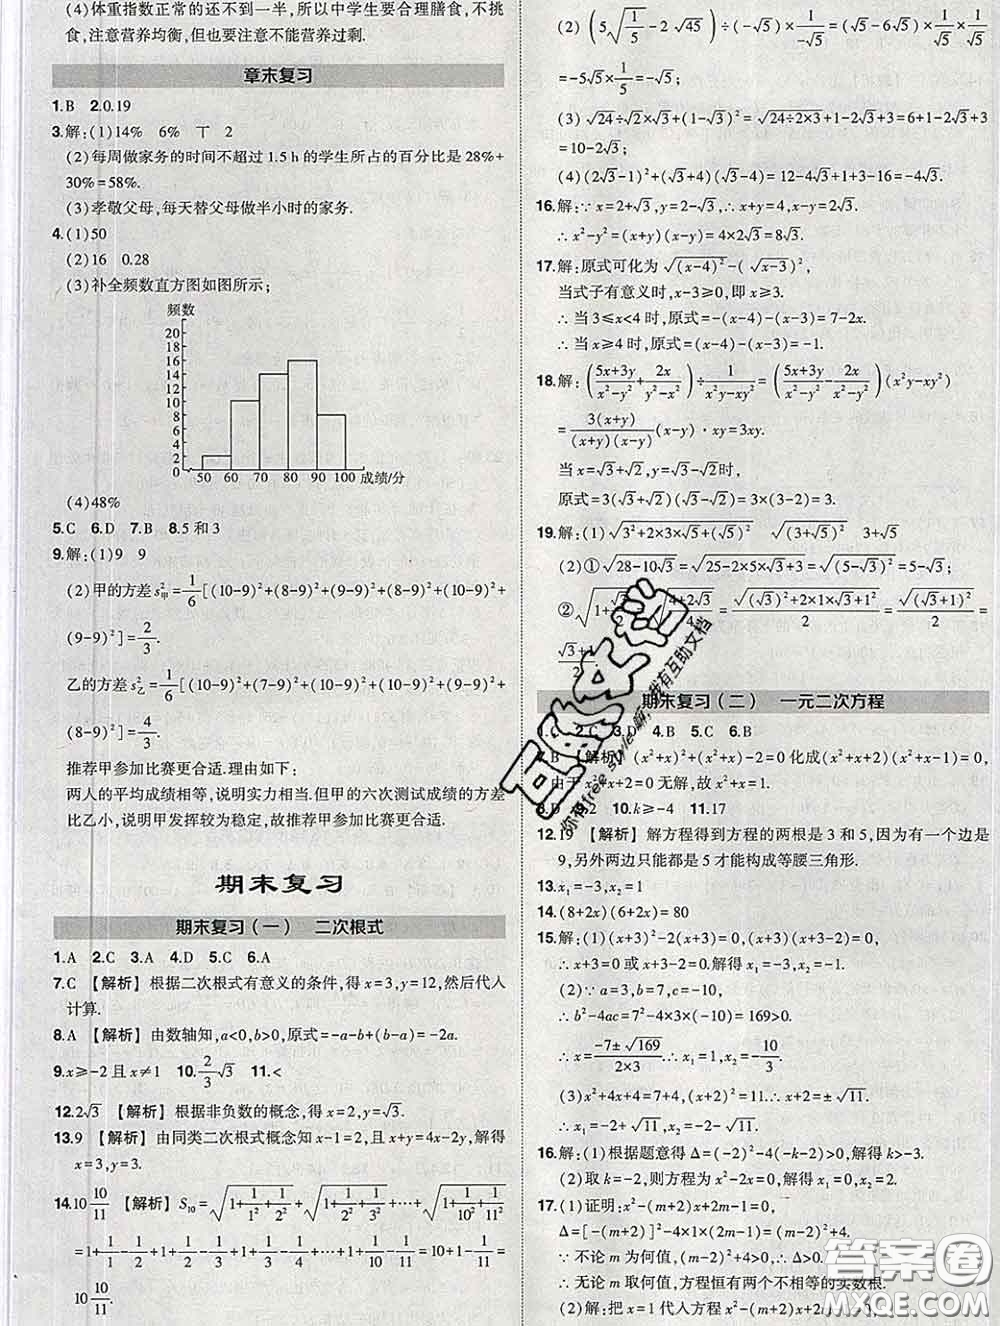 (4)体重指数正常的还不到一半,所以中学生要合理膳食,不挑
食,注意营养均衡,但也要注意不能营养过剩.
章末复习
1.B 2.0.19
3.解:(1)14% 6% 丅 2
(2)每周做家务的时间不超过 1.5 h 的学生所占的百分比是 28%+
30%=58%.
(3)孝敬父母,每天替父母做半小时的家务.
4.(1)50
(2)16 0.28
(3)补全频数直方图如图所示;
频数
20
18
16
14
12
10
8
6
4
2
50 60 70 80 90 100 成绩/分
(4)48%
5.C 6.D 7.B 8.5 和 3
9.解:(1)9 9
(2)甲的方差 s²甲=1/6[(10-9)²+(8-9)²+(9-9)²+(8-9)²+(10-9)²+
(9-9)²]=2/3.
乙的方差 s²乙=1/6[(10-9)²+(7-9)²+(10-9)²+(10-9)²+(9-9)²+
(8-9)²]=4/3.
推荐甲参加比赛更合适.理由如下:
两人的平均成绩相等,说明实力相当.但甲的六次测试成绩的方差
比乙小,说明甲发挥较为稳定,故推荐甲参加比赛更合适.
期末复习
期末复习(一) 二次根式
1.A 2.C 3.A 4.D 5.C 6.A
7.C 【解析】根据二次根式有意义的条件,得 x=3,y=12,然后代人
计算.
8.A 【解析】由数轴知,a<0,b>0,原式=-a-b+(b-a)=-2a.
9.x≥-2 且 x≠1 10.2/3√3 11.<
12.2√3 【解析】根据非负数的概念,得 x=2,y=√3.
13.9 【解析】由同类二次根式概念知 x-1=2,且 x+y=4x-2y,解得
x=3,y=3.
14.10 10/11 【解析】S₁₀=√(1+1/1²+1/2²)+√(1+1/2²+1/3²)+⋯+√(1+1/10²+1/11²)
=1+1/1-1/2+1+1/2-1/3+1+1/3-1/4+⋯+1+1/10-1/11=10+1-1/11=
10 10/11.
(2)(5√(1/5)-2√45)÷(-√5)=(√5-6√5)×1/(-√5)
=-5√5×1/(-√5)=5
(3)√24÷√2×√3+(1-√3)²=√(24÷2×3)+1-2√3+3=6+1-2√3+3
=10-2√3;
(4)(2√3-1)²+(√3+4)(√3-4)=12-4√3+1+3-16=-4√3.
16.解:∵x=2+√3,y=2-√3,∴x+y=4,x-y=2√3.
∴x²-y²=(x+y)(x-y)=4×2√3=8√3.
17.解:原式可化为 √(x-4)²-(√(x-3))²,
当式子有意义时,x-3≥0,即 x≥3.
∴当 3≤x<4 时,原式=-(x-4)-(x-3)=7-2x.
∴当 x≥4 时,原式=(x-4)-(x-3)=-1.
18.解:((5x+3y)/(x²-y²)+2x/(y²-x²))÷1/(x²y-xy²)=((5x+3y)/(x²-y²)-2x/(x²-y²))(x²y-xy²)
=3(x+y)/((x+y)(x-y))(x-y)·xy=3xy.
当 x=√3+√2,y=√3-√2时,
原式=3(√3+√2)(√3-√2)=3×(3-2)=3.
19.解:(1)√(3²+2×3×√5+(√5)²) √(3+√5)² 3+√5
(2)①√(28-10√3)=√(25-2×5×√3+3)=√(5-√3)²=5-√3;
√3+1/2.
期末复习(二) 一元二次方程
1.C 2.C 3.D 4.B 5.C 6.B
7.B 【解析】(x²+x)²+(x²+x)-2=0 化成(x²+x+2)(x²+x-1)=0,
由于 x²+x+2=0 无解,故 x²+x=1.
8.D 9.2 10.k≥-4 11.17
12.19 【解析】解方程得到方程的两根是 3 和 5,因为有一个边是
9,另外两边只能都是 5 才能构成等腰三角形.
13.x₁=-3,x₂=1
14.(8+2x)(6+2x)=80
15.解:(1)(x+3)²-2x(x+3)=0,(x+3)(x+3-2x)=0,
∴x+3=0 或 3-x=0.解得 x₁=-3,x₂=3.
(2)∵a=3,b=7,c=-10,
∴b²-4ac=7²-4×3×(-10)=169>0.
∴x=(-7±√169)/(2×3).∴x₁=1,x₂=-10/3.
(3)x²+4x+4=7+4,(x+2)²=11.∴x+2=±√11.
∴x₁=-2+√11,x₂=-2-√11.
16.解:(1)根据题意得 Δ=(-2)²-4(-k-2)>0,解得 k>-3.
(2)取 k=-2,则方程为 x²-2x=0,解得 x₁=0,x₂=2.
17.(1)证明:x²-(m+2)x+2m-1=0,
Δ=[-(m+2)]²-4×1×(2m-1)=(m-2)²+4.
∵不论 m 为何值,(m-2)²+4>0,∴Δ>0.
∴无论 m 取何值,方程恒有两个不相等的实数根.
(2)解:把 x=1 代人方程 x²-(m+2)x+2m
答案圈
MXQE.COM